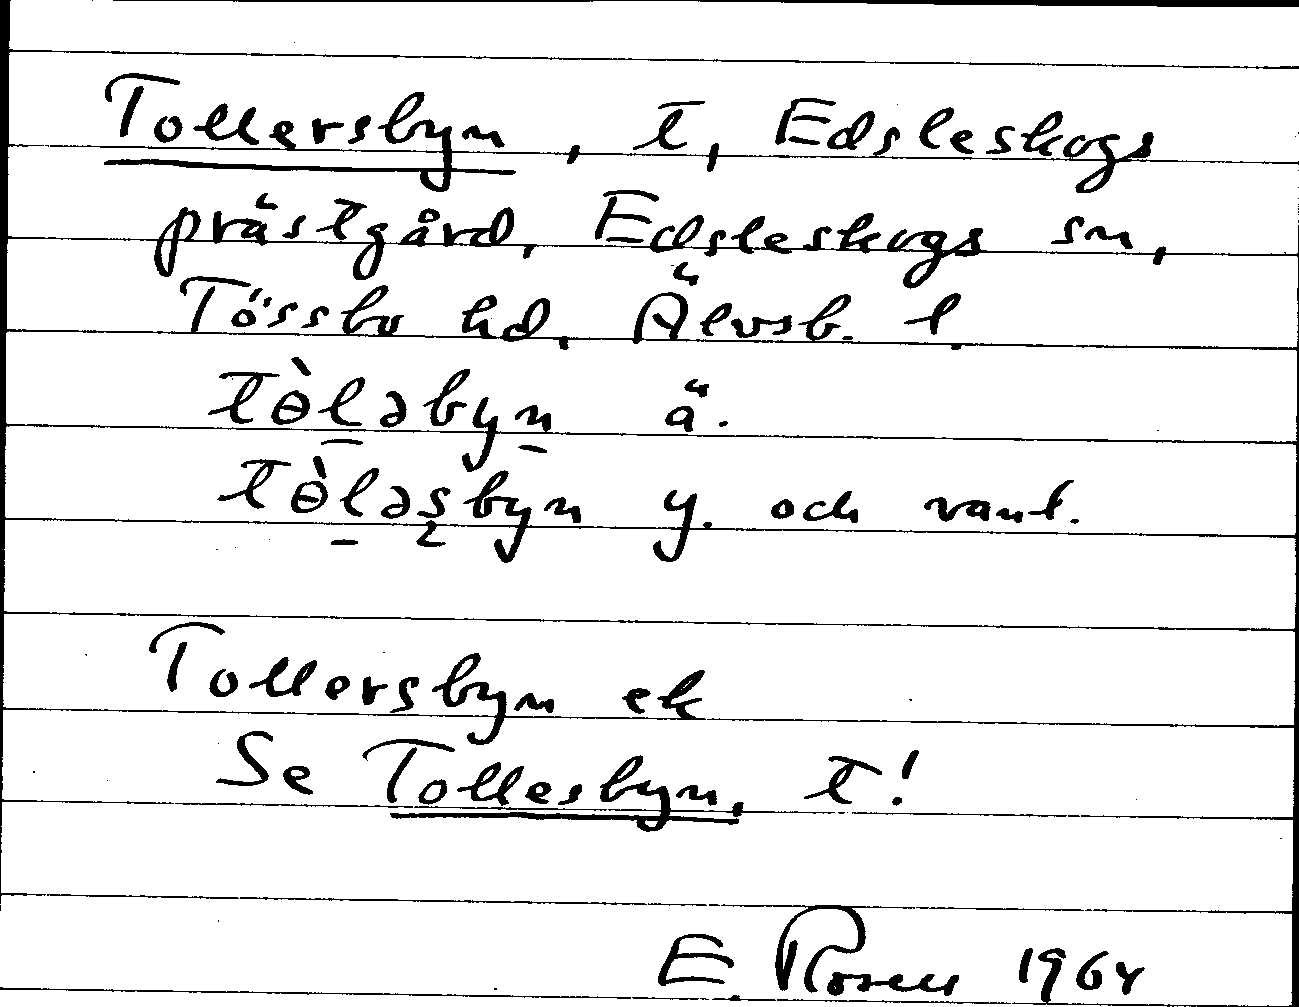 Tollersbyn, t, Edsleskogs
prästgård, Edsleskogs sn,
Tössbo hd, Älvsb. l.
tɵ̀l̠əbyn̠ ä.
tɵ̀l̠əʂbyn y. och vanl.
Tollersbyn ek
Se Tollesbyn, t!
E. Rosell 1964